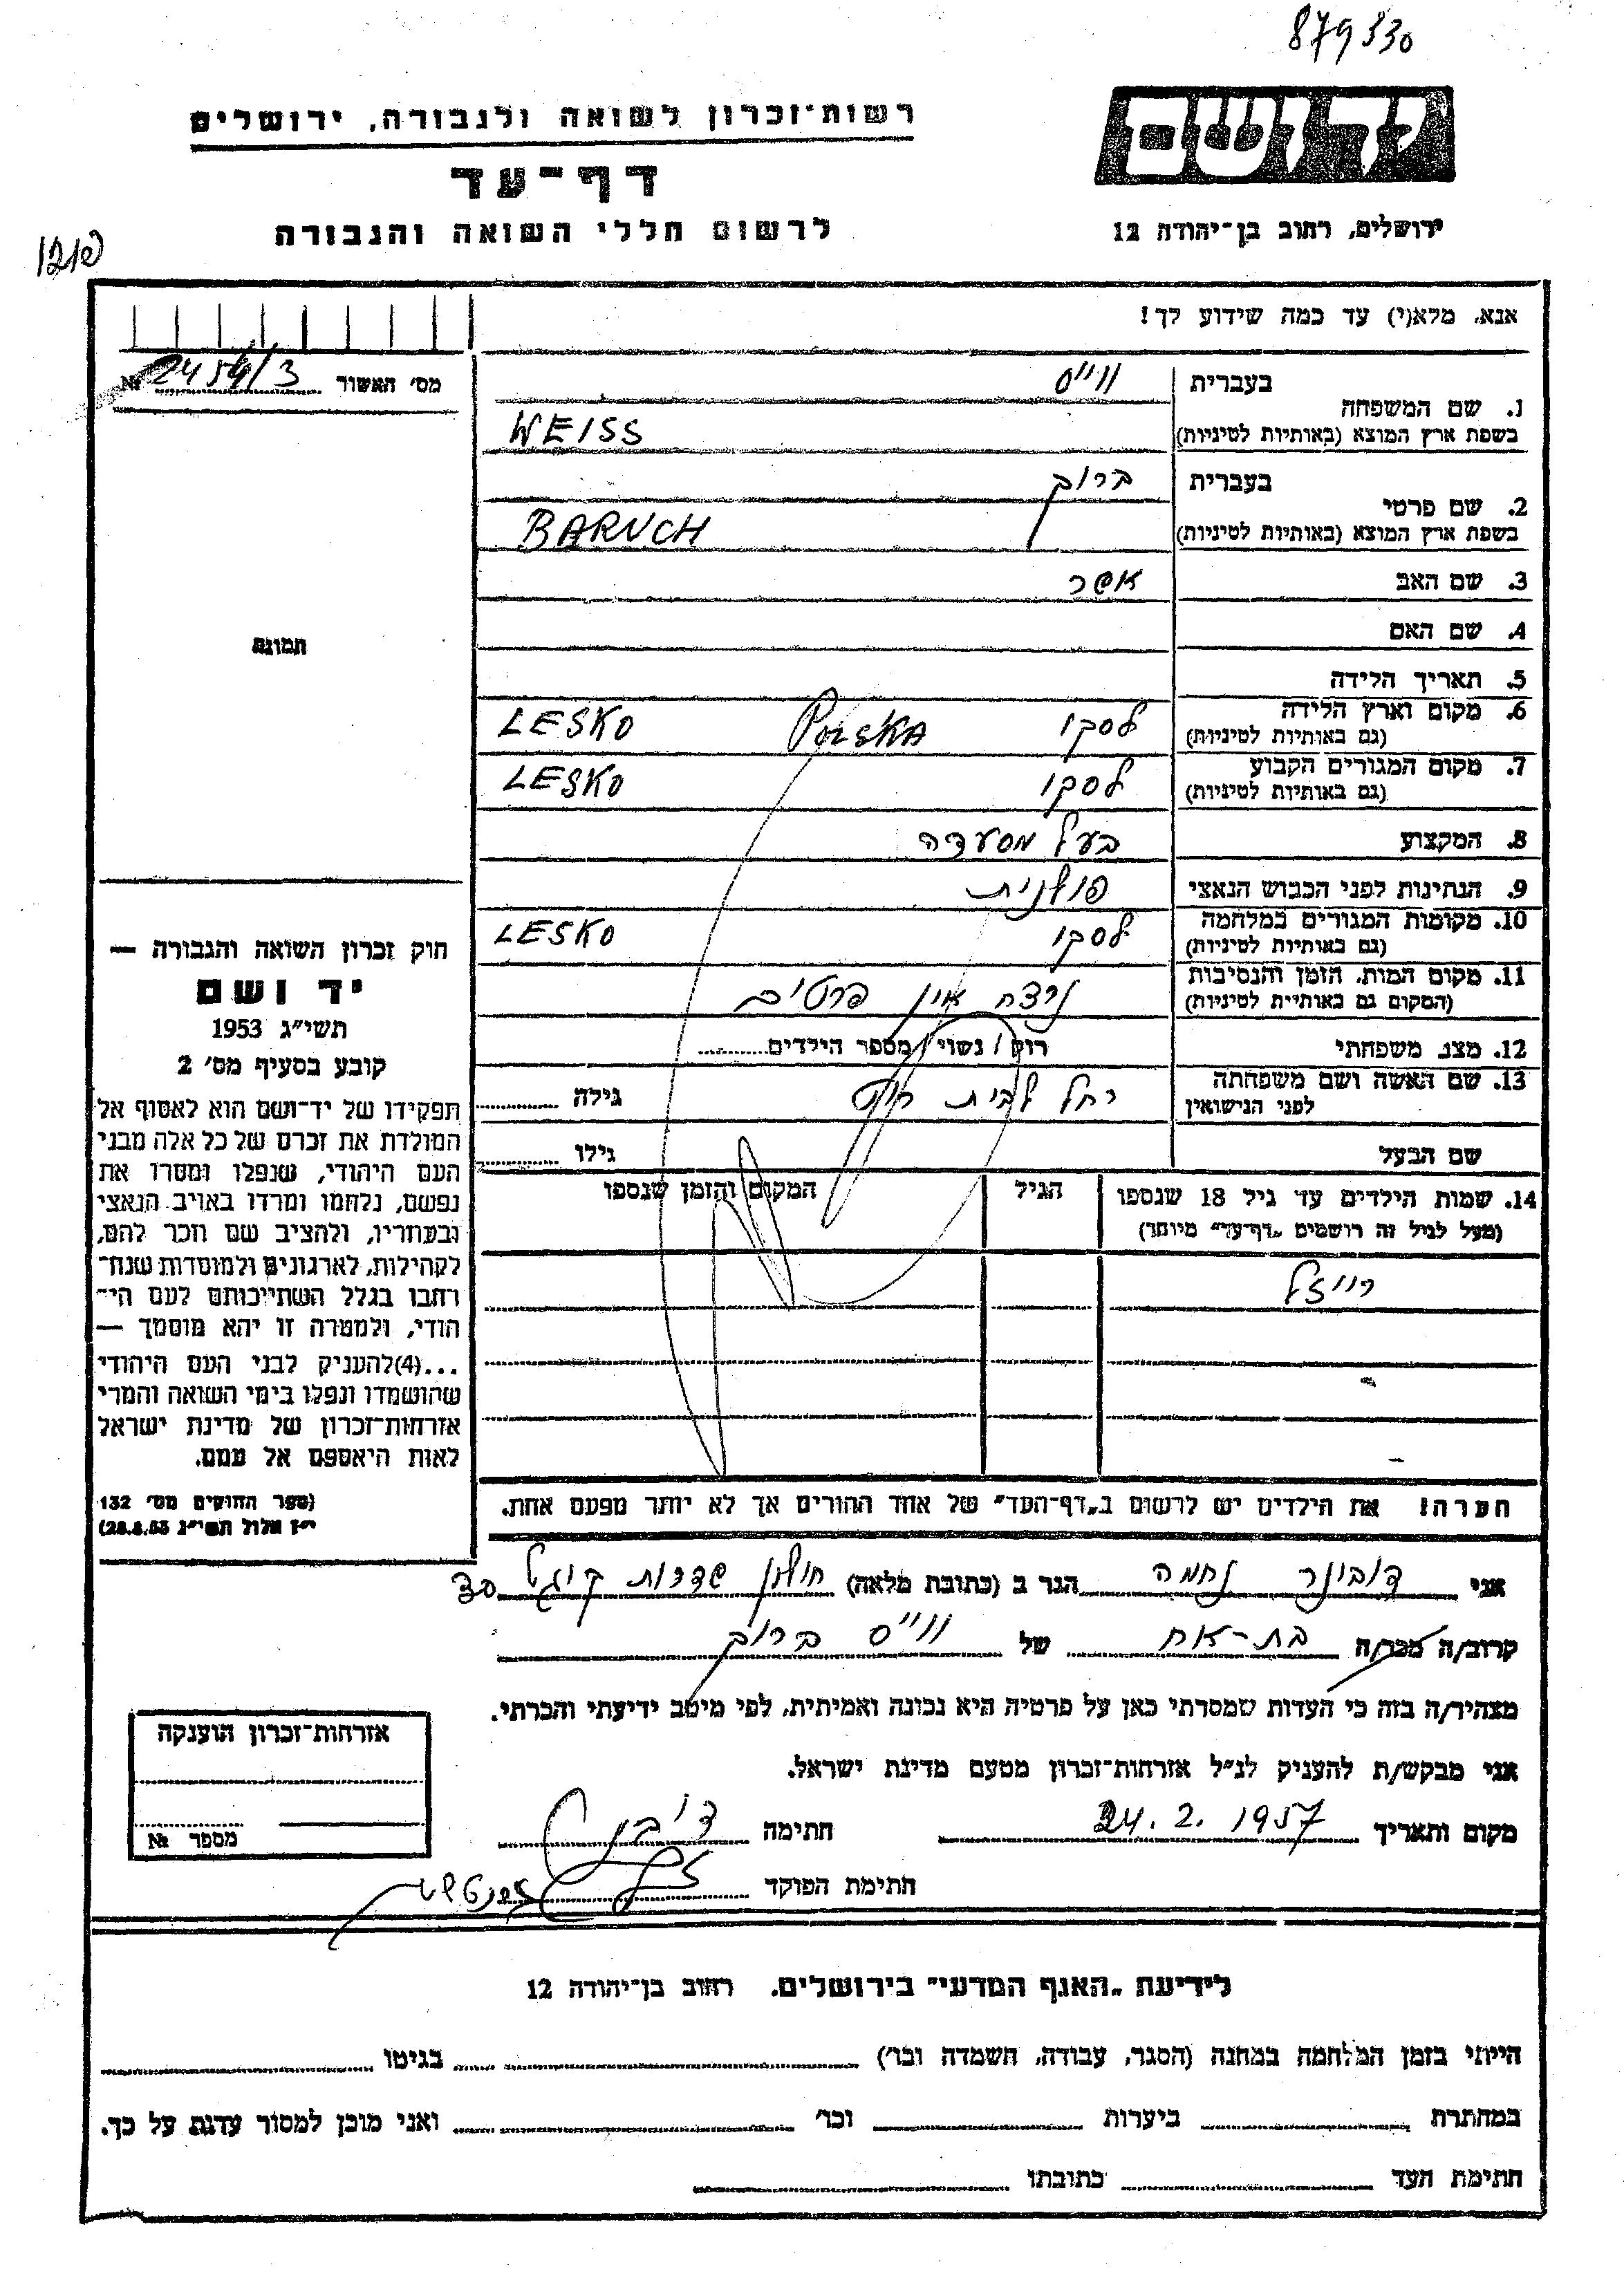 879330
רשות־זכרון לשואה ולגבורה, ירושלים
יד ושם
דף־עד
לרשום חללי השואה והגבורה
ירושלים, רחוב בן־יהודה 12
אנא, מלא(י) עד כמה שידוע לך!
מס׳ האשור 2454/3 №
1. שם המשפחה
בעברית ווייס
בשפת ארץ המוצא (באותיות לטיניות) WEISS
2. שם פרטי
בעברית ברוך
בשפת ארץ המוצא (באותיות לטיניות) BARUCH
3. שם האב אשר
4. שם האם
תמונה
5. תאריך הלידה
6. מקום וארץ הלידה (גם באותיות לטיניות) לסקו POLSKA LESKO
7. מקום המגורים הקבוע (גם באותיות לטיניות) לסקו LESKO
8. המקצוע בעל מסעדה
9. הנתינות לפני הכבוש הנאצי פולנית
10. מקומות המגורים במלחמה (גם באותיות לטיניות) לסקו LESKO
11. מקום המות, הזמן והנסיבות (המקום גם באותיות לטיניות) נרצח אין פרטים
12. מצב משפחתי רווק / נשוי / מספר הילדים
13. שם האשה ושם משפחתה לפני הנישואין רחל לבית גילה
שם הבעל גילו
14. שמות הילדים עד גיל 18 שנספו הגיל המקום והזמן שנספו
(מעל לגיל זה רושמים „דף־עד” מיוחד)
רייזל
הערה! את הילדים יש לרשום ב„דף־העד” של אחד ההורים אך לא יותר מפעם אחת.
חוק זכרון השואה והגבורה —
יד ושם
תשי״ג 1953
קובע בסעיף מס׳ 2
תפקידו של יד־ושם הוא לאסוף אל
המולדת את זכרם של כל אלה מבני
העם היהודי, שנפלו ומסרו את
נפשם, נלחמו ומרדו באויב הנאצי
ובעוזריו, ולהציב שם וזכר להם,
לקהילות, לארגונים ולמוסדות שנח־
רבו בגלל השתייכותם לעם הי־
הודי, ולמטרה זו יהא מוסמך —
...(4)להעניק לבני העם היהודי
שהושמדו ונפלו בימי השואה והמרי
אזרחות־זכרון של מדינת ישראל
לאות היאספם אל עמם.
(ספר החוקים מס׳ 132
י״ז אלול תשי״ג 28.8.53)
אני דובינר נחמה הגר ב (כתובת מלאה) חולון שדרות קוגל
קרוב/ה מכר/ה בת-אח של ווייס ברוך
מצהיר/ה בזה כי העדות שמסרתי כאן על פרטיה היא נכונה ואמיתית, לפי מיטב ידיעתי והכרתי.
אני מבקש/ת להעניק לנ״ל אזרחות־זכרון מטעם מדינת ישראל.
מקום ותאריך 24.2.1957 חתימה
חתימת הפוקד
אזרחות־זכרון הוענקה
מספר №
לידיעת „האגף המדעי” בירושלים, רחוב בן־יהודה 12
הייתי בזמן המלחמה במחנה (הסגר, עבודה, השמדה וכו׳) בגיטו
במחתרת ביערות וכו׳ ואני מוכן למסור עדות על כך.
חתימת העד כתובתו